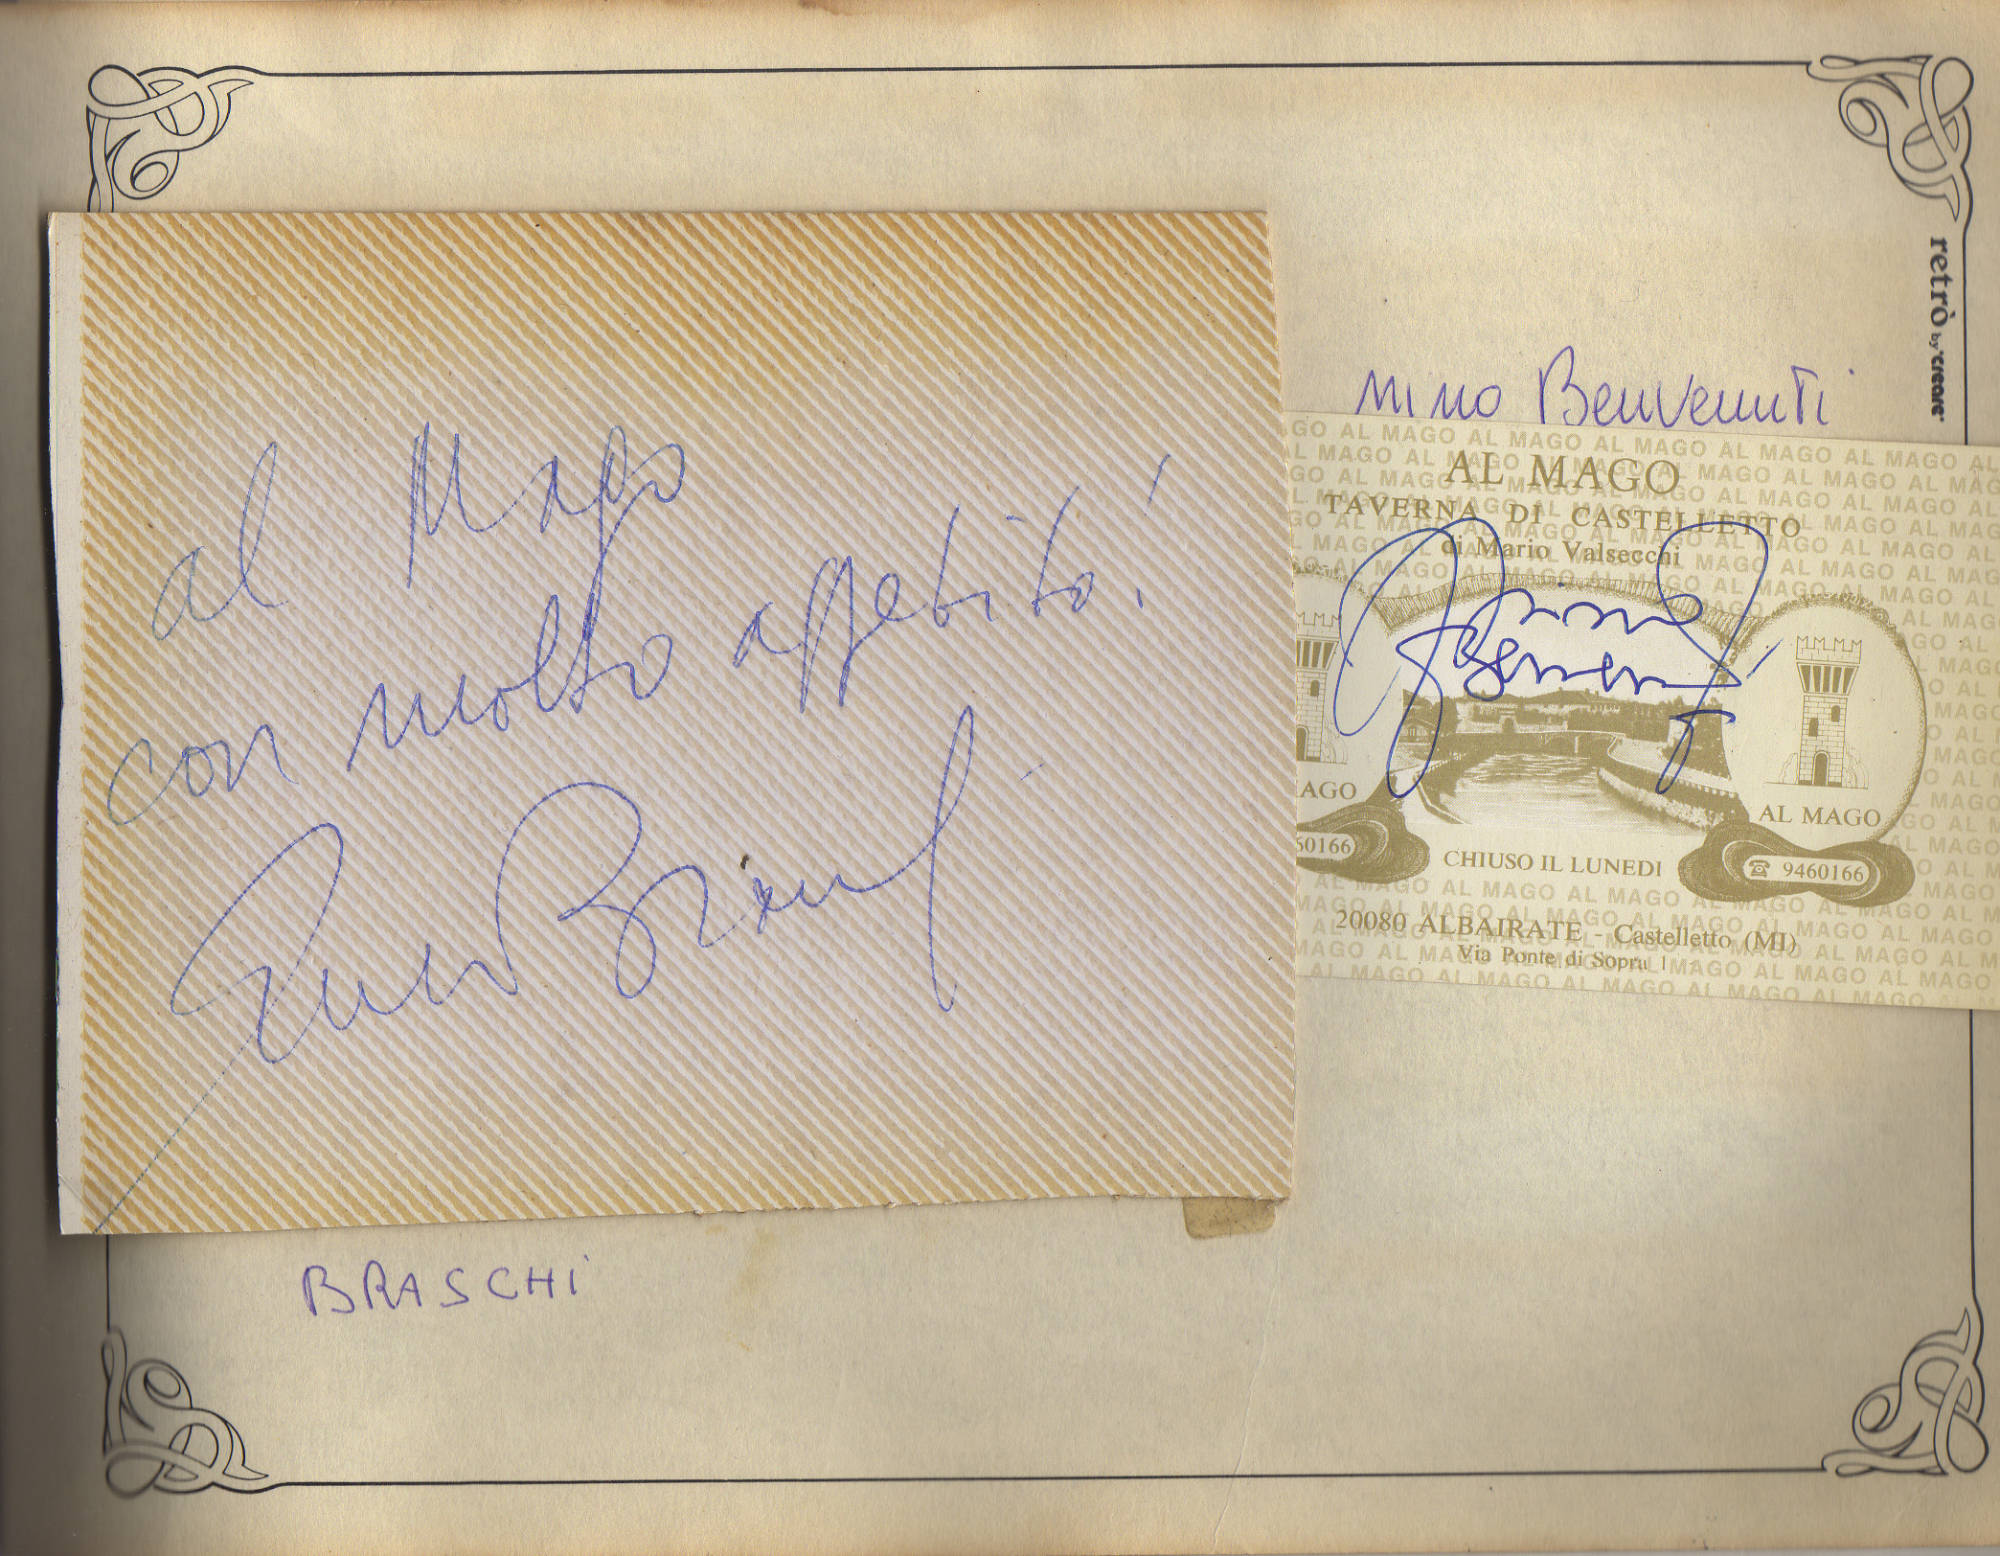 al Mago
con molto appetito!
BRASCHI
retrò by "creare"
NINO BENVENUTI
AL MAGO
TAVERNA DI CASTELLETTO
di Mario Valsecchi
Nino
Benvenuti
AGO
60166
AL MAGO
9460166
CHIUSO IL LUNEDI
20080 ALBAIRATE - Castelletto (MI)
Via Ponte di Sopra 1